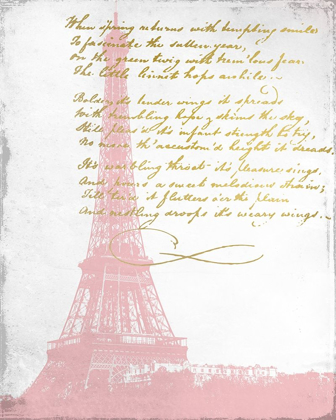 When spring returns with tempting smiles
To fascinate the sullen year,
On the green twig with trem'lous fear
The little linnet hops awhile.
Bolder its tender wings it spreads
With trembling hope skims the sky,
Still pleas'd its infant strength to try,
No more th'accustom'd height it dreads.
Its warbling throat its pleasure sings,
And pours a sweet melodious strain;
Till tired it flutters o'er the plain
And nestling droops its weary wings.